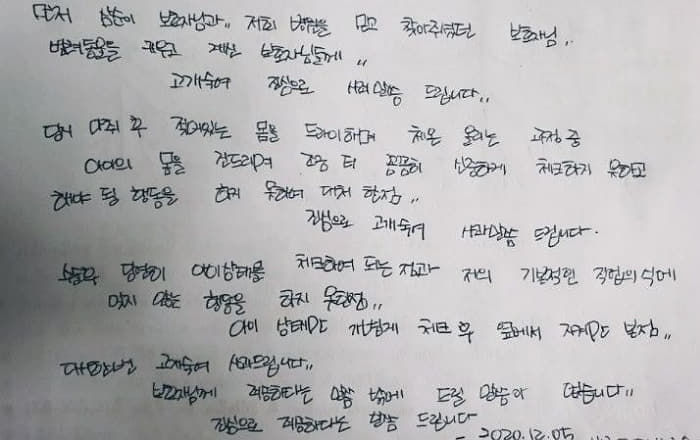 먼저 삼순이 보호자님과,, 저희 병원을 믿고 찾아주셨던 보호자님,,
반려동물을 키우고 계신 보호자님들께,,
고개숙여 진심으로 사과말씀 드립니다,,
당시 마취 후 젖어있는 몸을 드라이하며 체온 올리는 과정 중
아이의 몸을 건드리며 한층 더 꼼꼼히 신중하게 체크하지 못하고
해야 될 행동을 하지 못하여 대처 한점,,
진심으로 고개숙여 사과말씀 드립니다.
수술후 당연히 아이상태를 체크하여 또는 점과 저의 기본적인 직업의식에
맞지 않는 행동을 하지 못한점,,
아이 상태만 가볍게 체크 후 옆에서 지켜만 본점,,
다시한번 고개숙여 사과드립니다,,
보호자님께 죄송하다는 말씀 밖에 드릴 말씀이 없습니다,,
진심으로 죄송하다는 말씀 드립니다
- 2020.12.05